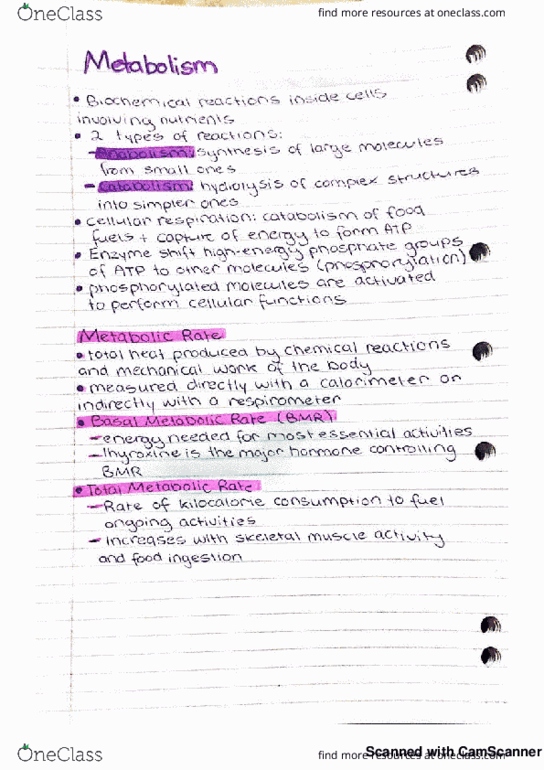 OneClass
find more resources at oneclass.com
Metabolism
• Biochemical reactions inside cells
involving nutrients
• 2 types of reactions:
- Anabolism: synthesis of large molecules
from small ones
- Catabolism: hydrolysis of complex structures
into simpler ones
• cellular respiration: catabolism of food
fuels + capture of energy to form ATP
• Enzyme shift high-energy phosphate groups
of ATP to other molecules (phosphorylation)
• phosphorylated molecules are activated
to perform cellular functions
Metabolic Rate
• total heat produced by chemical reactions
and mechanical work of the body
• measured directly with a calorimeter or
indirectly with a respirometer
• Basal Metabolic Rate (BMR):
- energy needed for most essential activities
- Thyroxine is the major hormone controlling
BMR
• Total Metabolic Rate
- Rate of kilocalorie consumption to fuel
ongoing activities
- Increases with skeletal muscle activity
and food ingestion
OneClass
find more resources at oneclass.com
Scanned with CamScanner